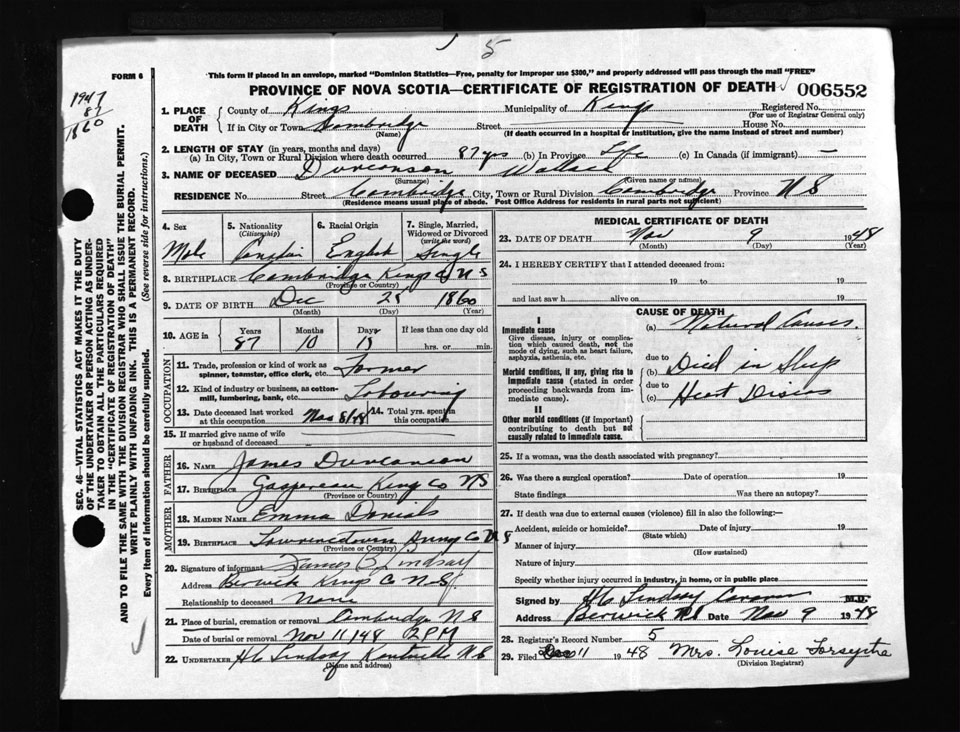 5
FORM 6
This form if placed in an envelope, marked "Dominion Statistics—Free, penalty for improper use $300," and properly addressed will pass through the mail "FREE"
PROVINCE OF NOVA SCOTIA—CERTIFICATE OF REGISTRATION OF DEATH
006552
1947
87
1860
1. PLACE OF DEATH
County of Kings Municipality of Kings Registered No.
(For use of Registrar General only)
If in City or Town Cambridge Street House No.
(Name) (If death occurred in a hospital or institution, give the name instead of street and number)
2. LENGTH OF STAY (in years, months and days)
(a) In City, Town or Rural Division where death occurred 87 yrs (b) In Province Life (c) In Canada (if immigrant) —
3. NAME OF DECEASED Duncanson Wallace
(Surname) (Given name or names)
RESIDENCE No. Street Cambridge City, Town or Rural Division Cambridge Province N S
(Residence means usual place of abode. Post Office Address for residents in rural parts not sufficient)
4. Sex
Male
5. Nationality
(Citizenship)
Canadian
6. Racial Origin
English
7. Single, Married, Widowed or Divorced
(write the word)
Single
8. BIRTHPLACE Cambridge Kings Co N S
(Province or Country)
9. DATE OF BIRTH Dec 25 1860
(Month) (Day) (Year)
10. AGE in
Years Months Days If less than one day old
87 10 15 hrs. or min.
OCCUPATION
11. Trade, profession or kind of work as spinner, teamster, office clerk, etc. Farmer
12. Kind of industry or business, as cotton-mill, lumbering, bank, etc. Labouring
13. Date deceased last worked at this occupation Nov 8/48
14. Total yrs. spent in this occupation
15. If married give name of wife or husband of deceased
FATHER
16. NAME James Duncanson
17. BIRTHPLACE Gaspereau Kings Co NS
(Province or Country)
MOTHER
18. MAIDEN NAME Emma Daniels
19. BIRTHPLACE Lawrencetown Co N S
(Province or Country)
20. Signature of informant James Lindsay
Address Berwick Kings Co N-S
Relationship to deceased None
21. Place of burial, cremation or removal Cambridge N S
Date of burial or removal Nov 11/48 2 PM
22. UNDERTAKER H C Lindsay Kentville N S
(Name and address)
MEDICAL CERTIFICATE OF DEATH
23. DATE OF DEATH Nov 9 1948
(Month) (Day) (Year)
24. I HEREBY CERTIFY that I attended deceased from:
19 to 19
and last saw h alive on 19
CAUSE OF DEATH
I
Immediate cause
Give disease, injury or complication which caused death, not the mode of dying, such as heart failure, asphyxia, asthenia, etc.
(a) Natural Causes.
due to
Morbid conditions, if any, giving rise to immediate cause (stated in order proceeding backwards from immediate cause).
(b) Died in Sleep
due to
(c) Heart Diseas
II
Other morbid conditions (if important) contributing to death but not causally related to immediate cause.
25. If a woman, was the death associated with pregnancy?
26. Was there a surgical operation? Date of operation 19
State findings Was there an autopsy?
27. If death was due to external causes (violence) fill in also the following:—
Accident, suicide or homicide? Date of injury 19
(State which)
Manner of injury
(How sustained)
Nature of injury
Specify whether injury occurred in industry, in home, or in public place
Signed by H C Lindsay Coroner M.D.
Address Berwick NS Date Nov 9 1948
28. Registrar's Record Number 5
29. Filed 11 1948 Mrs. Louise Forsythe
(Division Registrar)
SEC. 46—VITAL STATISTICS ACT MAKES IT THE DUTY OF THE UNDERTAKER OR PERSON ACTING AS UNDERTAKER TO OBTAIN ALL THE PARTICULARS REQUIRED IN THE "CERTIFICATE OF REGISTRATION OF DEATH" AND TO FILE THE SAME WITH THE DIVISION REGISTRAR WHO SHALL ISSUE THE BURIAL PERMIT.
WRITE PLAINLY WITH UNFADING INK. THIS IS A PERMANENT RECORD.
Every item of information should be carefully supplied. (See reverse side for instructions.)